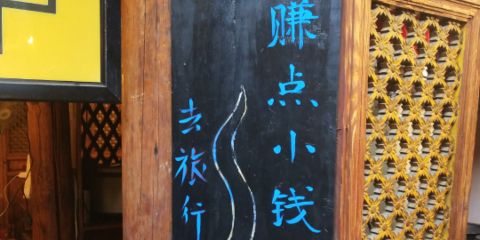 赚点小钱
去旅行